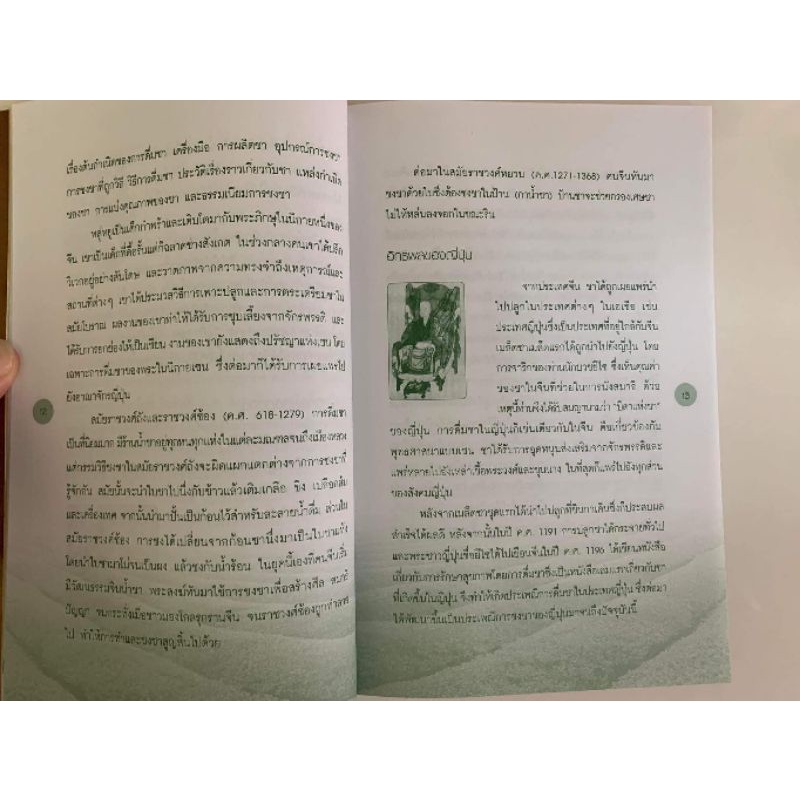 เรื่องต้นกำเนิดของการดื่มชา เครื่องมือ การผลิตชา อุปกรณ์การชงชา
การชงชาที่ถูกวิธี วิธีการดื่มชา ประวัติเรื่องราวเกี่ยวกับชา แหล่งกำเนิด
ของชา การแบ่งคุณภาพของชา และธรรมเนียมการชงชา
หลู่หยูเป็นเด็กกำพร้าและเติบโตมากับพระภิกษุในนิกายหนึ่งของ
จีน เขาเป็นเด็กที่ดื้อรั้นแต่ก็ฉลาดช่างสังเกต ในช่วงกลางคนเขาได้ปลีก
วิเวกอยู่อย่างสันโดษ และวาดภาพจากความทรงจำถึงเหตุการณ์และ
สถานที่ต่างๆ เขาได้ประมวลวิธีการเพาะปลูกและการตระเตรียมชาใน
สมัยโบราณ ผลงานของเขาทำให้ได้รับการชุบเลี้ยงจากจักรพรรดิ และ
ได้รับการยกย่องให้เป็นเซียน งานของเขายังแสดงถึงปรัชญาแห่งเซน โดย
เฉพาะการดื่มชาของพระในนิกายเซน ซึ่งต่อมาก็ได้รับการเผยแพร่ไป
ยังอาณาจักรญี่ปุ่น
สมัยราชวงศ์ถังและราชวงศ์ซ้อง (ค.ศ. 618-1279) การดื่มชา
เป็นที่นิยมมาก มีร้านน้ำชาอยู่ทุกหนทุกแห่งในแต่ละมณฑลจนถึงเมืองหลวง
แต่กรรมวิธีชงชาในสมัยราชวงศ์ถังจะผิดแผกแตกต่างจากการชงชาที่
รู้จักกัน สมัยนั้นจะนำใบชาไปนึ่งกับข้าวแล้วเติมเกลือ ขิง เปลือกส้ม
และเครื่องเทศ จากนั้นนำมาปั้นเป็นก้อนไว้สำหรับละลายน้ำดื่ม ส่วนใน
สมัยราชวงศ์ซ้อง การชงได้เปลี่ยนจากก้อนชานึ่งมาเป็นใบชาแห้ง
โดยนำใบชามาโม่จนเป็นผง แล้วชงกับน้ำร้อน ในยุคนี้เองที่คนจีนเริ่ม
มีวัฒนธรรมจิบน้ำชา พระสงฆ์หันมาใช้การชงชาเพื่อสร้างศีล สมาธิ
ปัญญา จนกระทั่งเมื่อชาวมองโกลรุกรานจีน จนราชวงศ์ซ้องถูกทำลาย
ไป ทำให้การทำและชงชาสูญสิ้นไปด้วย
12
ต่อมาในสมัยราชวงศ์หยวน (ค.ศ.1271-1368) คนจีนหันมา
ชงชาด้วยใบซึ่งต้องชงชาในป้าน (กาน้ำชา) ป้านชาจะช่วยกรองเศษชา
ไม่ให้หล่นลงจอกในขณะริน
อิทธิพลของญี่ปุ่น
จากประเทศจีน ชาได้ถูกเผยแพร่นำ
ไปปลูกในประเทศต่างๆ ในเอเชีย เช่น
ประเทศญี่ปุ่นซึ่งเป็นประเทศที่อยู่ใกล้กับจีน
เมล็ดชาเมล็ดแรกได้ถูกนำไปยังญี่ปุ่น โดย
การจาริกของท่านนักบวชยิไซ ซึ่งเห็นคุณค่า
ของชาในจีนที่ช่วยในการนั่งสมาธิ ด้วย
เหตุนี้ท่านจึงได้รับสมญานามว่า "บิดาแห่งชา"
ของญี่ปุ่น การดื่มชาในญี่ปุ่นก็เช่นเดียวกับในจีน คือเกี่ยวข้องกับ
พุทธศาสนาแบบเซน ชาได้รับการอุดหนุนส่งเสริมจากจักรพรรดิและ
แพร่หลายไปยังเหล่าเชื้อพระวงศ์และขุนนาง ในที่สุดก็แพร่ไปยังทุกส่วน
ของสังคมญี่ปุ่น
หลังจากเมล็ดชาชุดแรกได้นำไปปลูกที่ซึ่งประสบผล
สำเร็จได้ผลดี หลังจากนั้นในปี ค.ศ. 1191 การปลูกชาได้กระจายทั่วไป
และพระชาวญี่ปุ่นชื่อยิไซได้ไปเยือนจีนในปี ค.ศ. 1196 ได้เขียนหนังสือ
เกี่ยวกับการรักษาสุขภาพโดยการดื่มชาซึ่งเป็นหนังสือเล่มแรกเกี่ยวกับชา
ที่เกิดขึ้นในญี่ปุ่น จึงทำให้เกิดประเพณีการดื่มชาในประเทศญี่ปุ่น ซึ่งต่อมา
ได้พัฒนาขึ้นเป็นประเพณีการชงชาของญี่ปุ่นมาจนถึงปัจจุบันนี้
13